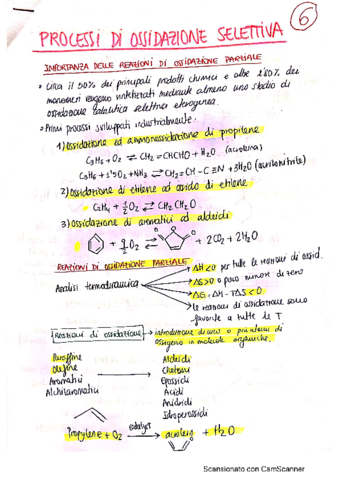 6
PROCESSI DI OSSIDAZIONE SELETTIVA
IMPORTANZA DELLE REAZIONI DI OSSIDAZIONE PARZIALE
Circa il 50% dei principali prodotti chimici e oltre l'80% dei
monomeri vengono sintetizzati mediante almeno uno stadio di
ossidazione catalitica selettiva eterogenea.
Primi processi sviluppati industrialmente:
1) Ossidazione ed ammonossidazione di propilene
C3H6 + O2 ⇄ CH2=CHCHO + H2O (acroleina)
C3H6 + 1'5O2 + NH3 ⇄ CH2=CH-C≡N + 3H2O (acrilonitrile)
2) Ossidazione di etilene ad ossido di etilene
C2H4 + 1/2 O2 ⇄ CH2CH2O
3) Ossidazione di aromatici ad aldeidi
+ 9/2 O2 ⇄ + 2CO2 + 2H2O
REAZIONI DI OSSIDAZIONE PARZIALE
Analisi termodinamica
ΔH<0 per tutte le reazioni di ossid.
ΔS>0 o poco minore di zero
ΔG = ΔH - TΔS < 0
le reazioni di ossidazione sono
favorite a tutte le T
Reazioni di ossidazione → introduzione di uno o più atomi di
ossigeno in molecole organiche.
Paraffine
Olefine
Aromatici
Alchilaromatici
Aldeidi
Chetoni
Epossidi
Acidi
Anidridi
Idroperossidi
Propylene + O2 catalyst → acrolein + H2O
Scansionato con CamScanner